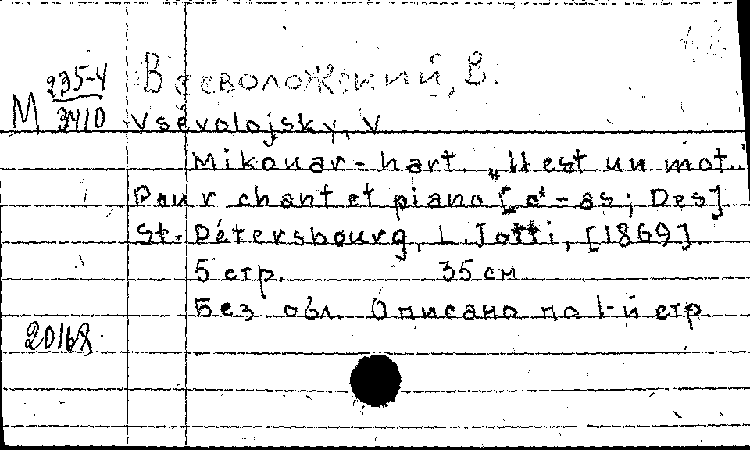 М 235-4
3410
Всеволожский, В.
Vsévolojsky, V
Mikouar-hart „Il est un mot..."
Pour chant et piano [d'-as; Des]
St.-Pétersbourg, L. Jotti, [1869].
5 стр. 35 см
Без обл. Описано по 1-й стр
20168